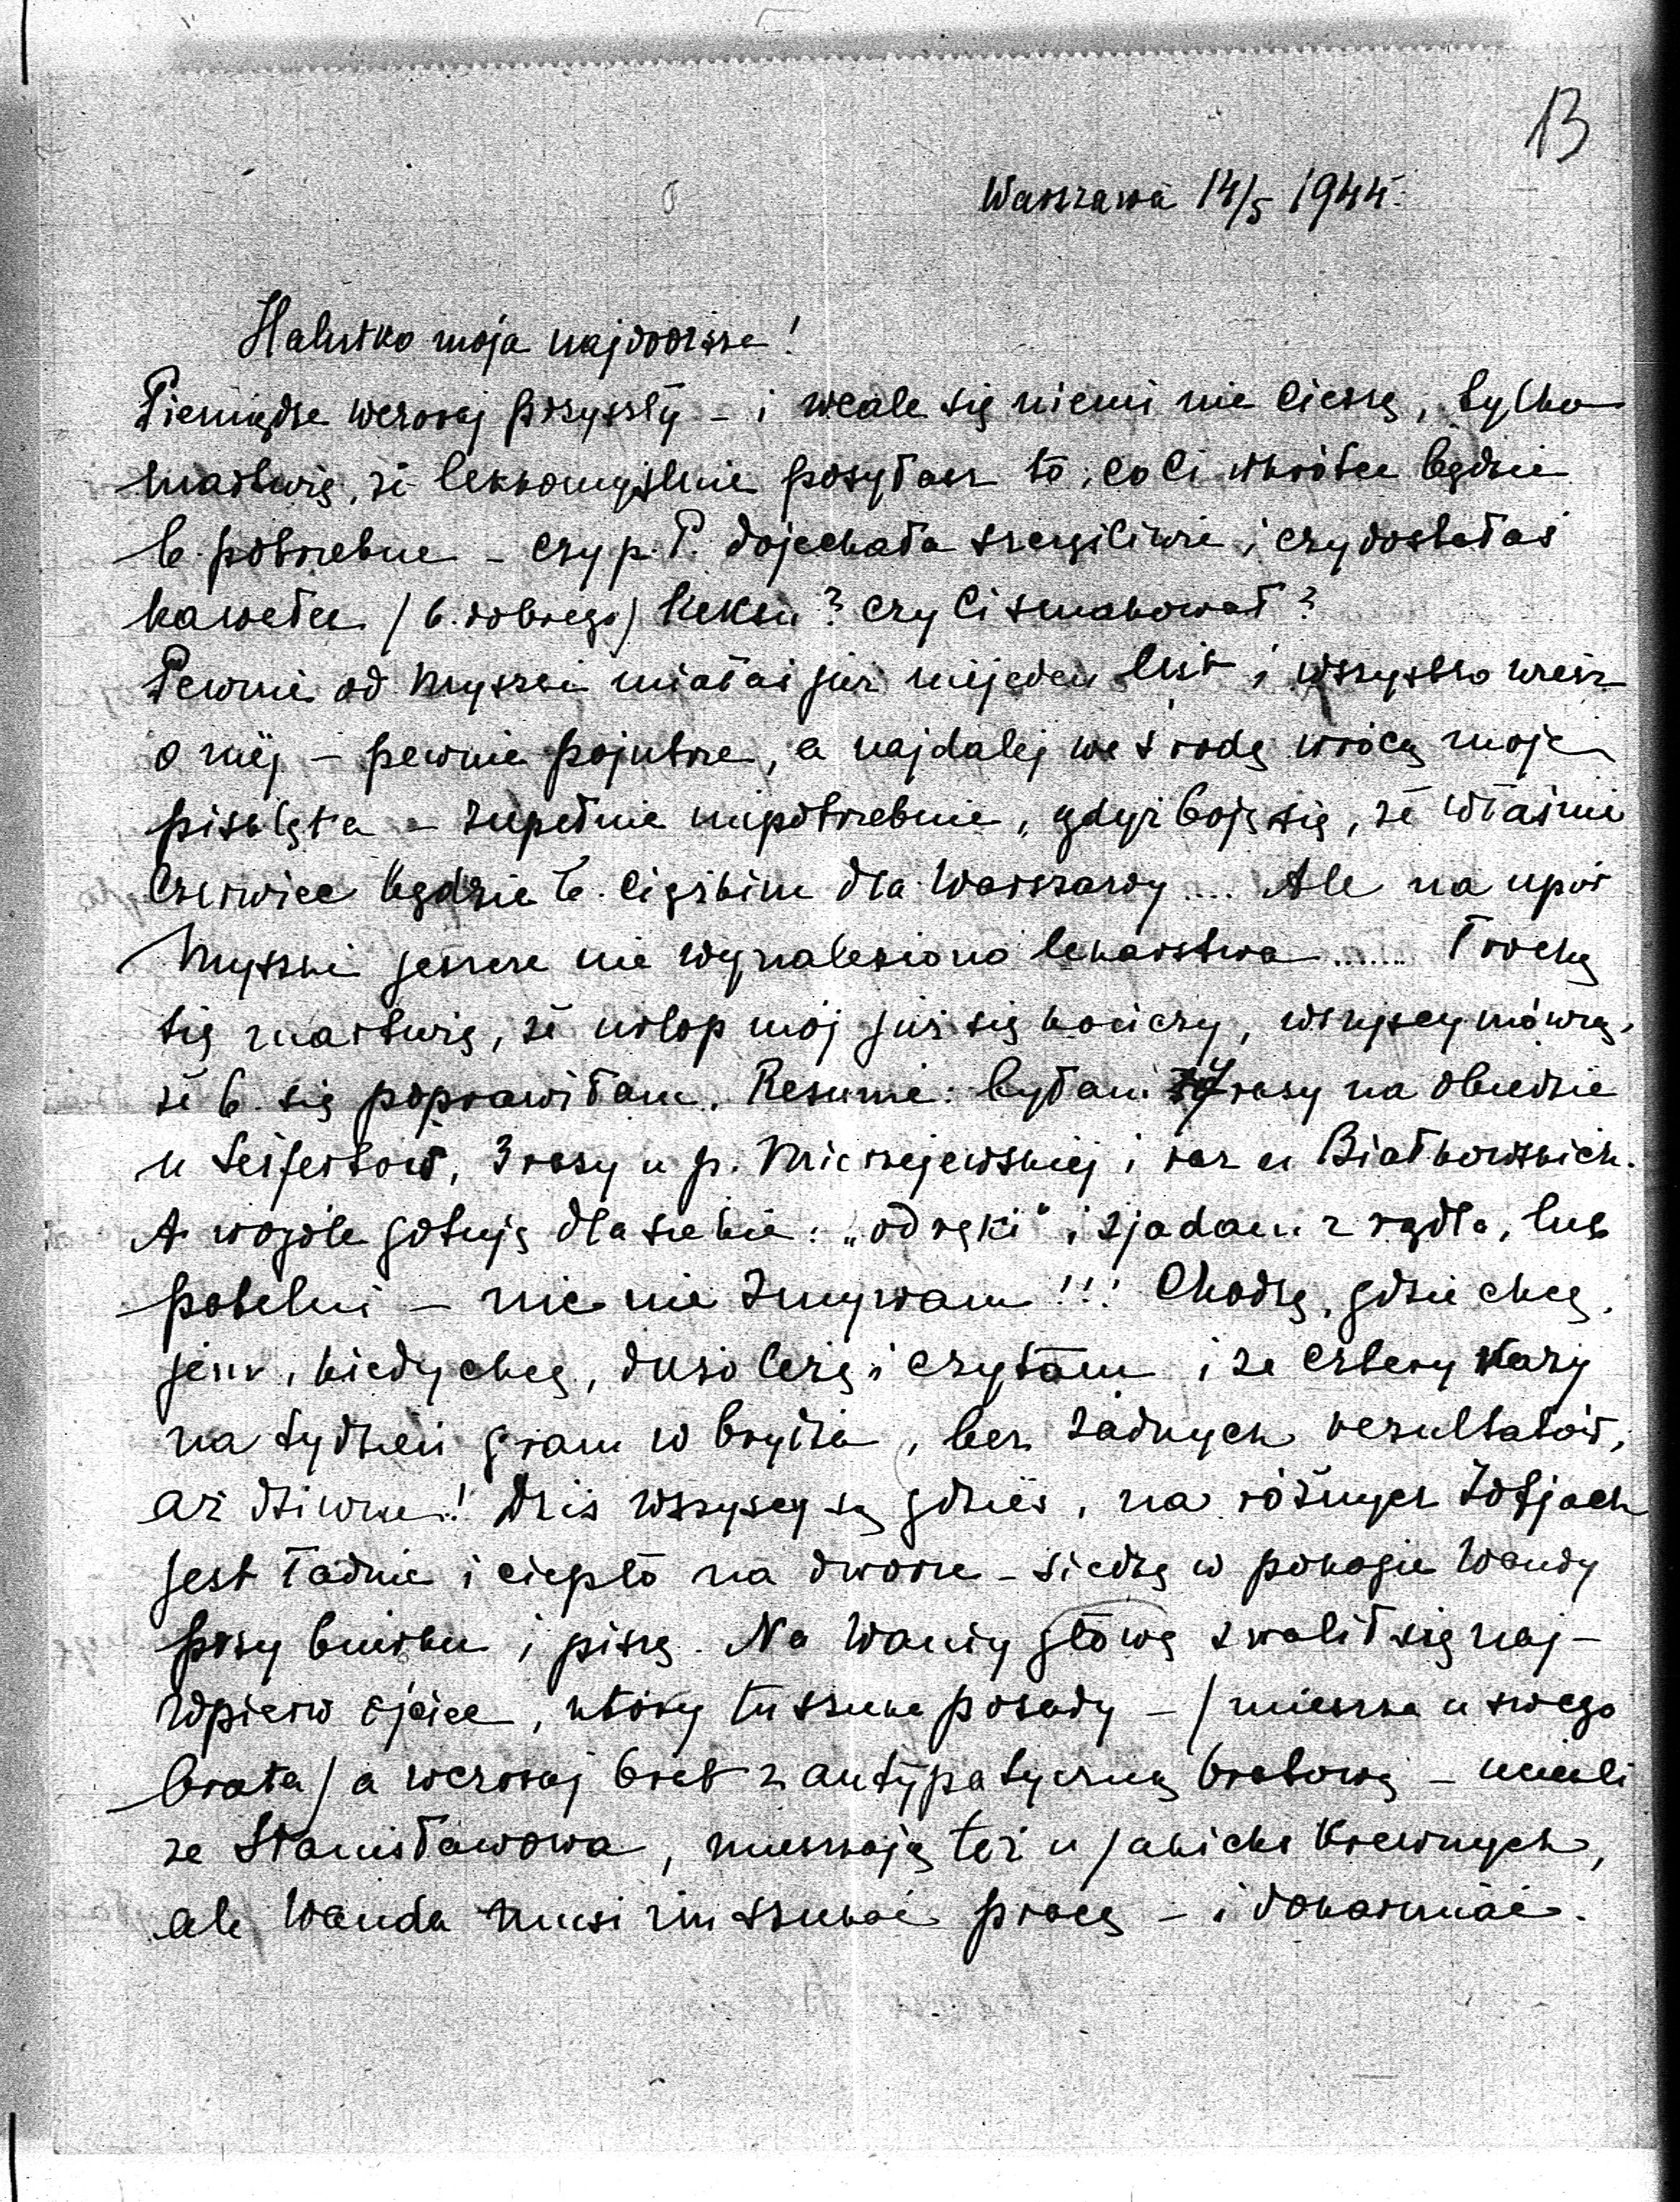 13
Warszawa 14/5 1944.
Halutko moja najdroższa!
Pieniądze wczoraj przyszły - i wcale się niemi nie cieszę, tylko
martwię, że lekkomyślnie posyłasz to, co Ci wkrótce będzie
b. potrzebne - czy p. P. dojechała szczęśliwie i czy dostałaś
kawałek /b. dobrego/ keksu? Czy Ci smakował?
Pewnie od Myszki miałaś już niejeden list i wszystko wiesz
o niej - pewnie pojutrze, a najdalej we środę wrócą moje
pisklęta - zupełnie niepotrzebnie, gdyż boję się, że właśnie
czerwiec będzie b. ciężkim dla Warszawy.... Ale na upór
Myszki jeszcze nie wynaleziono lekarstwa....... Trochę
się martwię, że urlop mój już się kończy, wszyscy mówią,
że b. się poprawiłam. Resume: byłam 4 razy na obiedzie
u Seifertów, 3 razy u p. Mierzejewskiej i raz u Białkowskich.
A wogóle gotuję dla siebie: „od ręki" i zjadam z rądla, lub
patelni - nic nie zmywam!!! Chodzę, gdzie chcę,
jem, kiedy chcę, dużo leżę i czytam i ze cztery razy
na tydzień gram w brydża, bez żadnych rezultatów,
aż dziwne! Dziś wszyscy są gdzieś, na różnych Zofjach
jest ładnie i ciepło na dworze - siedzę w pokoju Wandy
przy biurku i piszę. Na Wandy głowę zwalił się naj-
wpierw ojciec, który tu szuka posady - /mieszka u swego
brata/ a wczoraj brat z antypatyczną bratową - uciekli
ze Stanisławowa, mieszkają też u jakichś krewnych,
ale Wanda musi im szukać pracy - i dokarmiać.